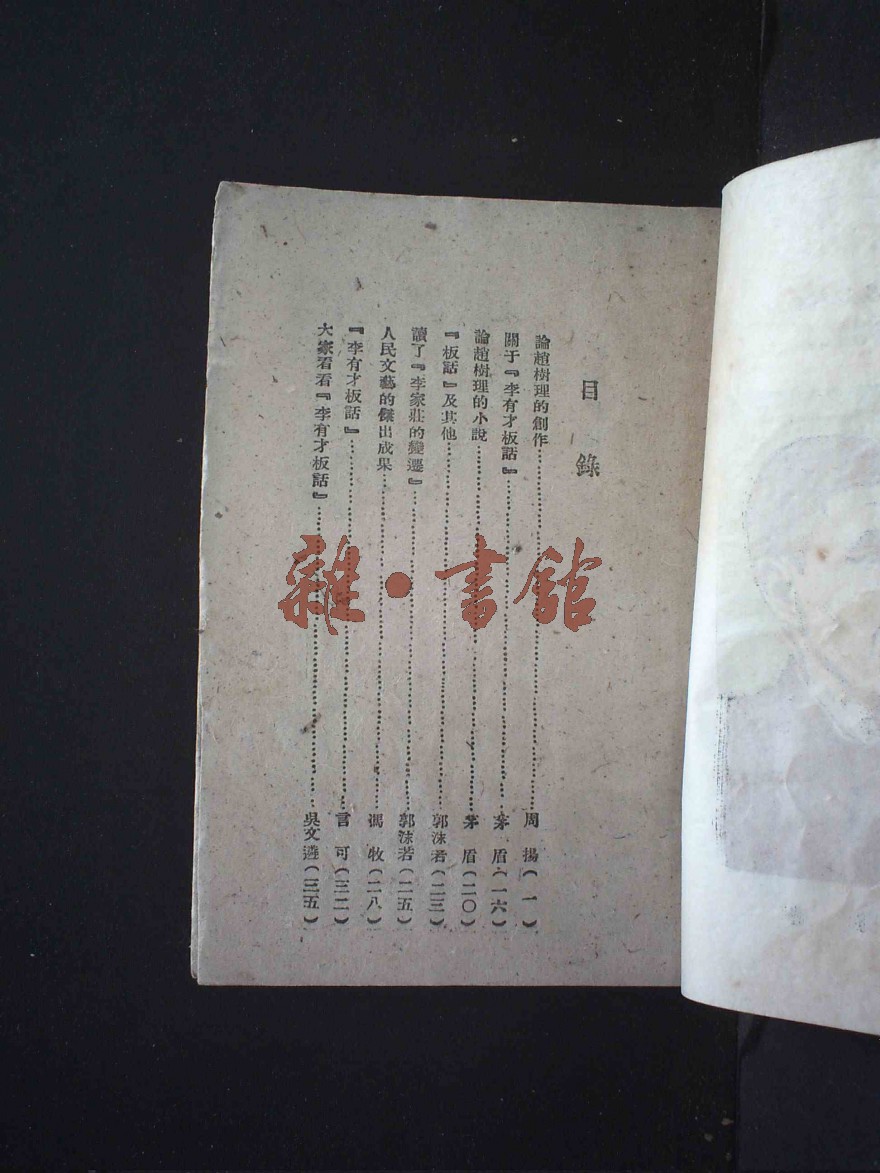 目錄
論趙樹理的創作……周揚(一)
關于『李有才板話』……茅盾(一六)
論趙樹理的小說……茅盾(二〇)
『板話』及其他……郭沫若(二三)
讀了『李家莊的變遷』……郭沫若(二五)
人民文藝的傑出成果……馮牧(二八)
『李有才板話』……言可(三二)
大家看看『李有才板話』……吳文遴(三五)
雜·書館